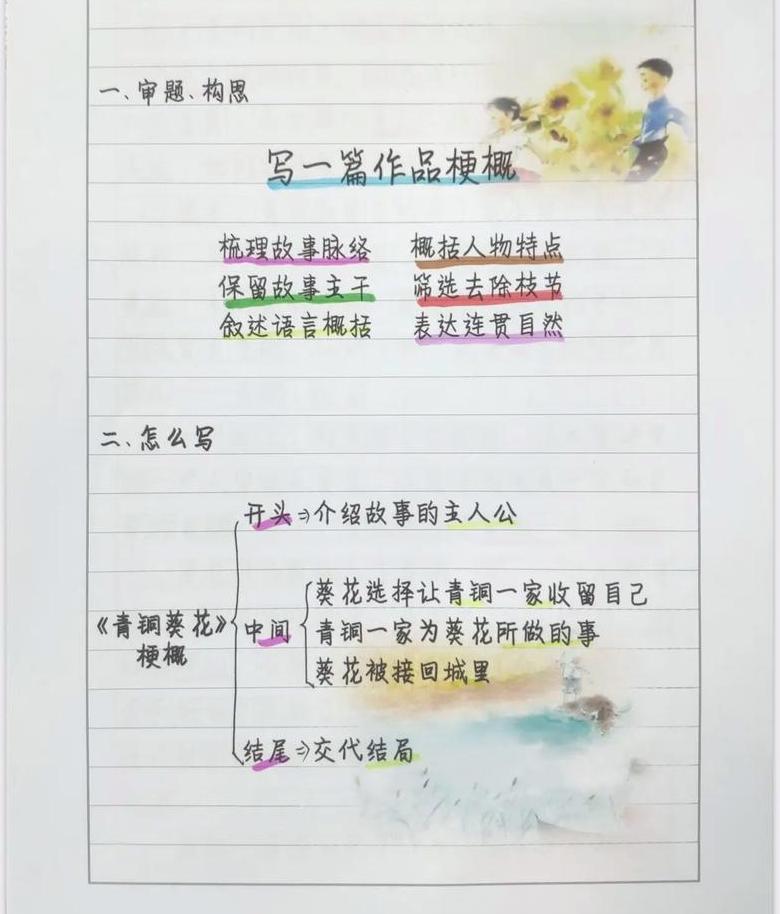 一、审题、构思
写一篇作品梗概
梳理故事脉络 概括人物特点
保留故事主干 筛选去除枝节
叙述语言概括 表达连贯自然
二、怎么写
开头⇒介绍故事的主人公
葵花选择让青铜一家收留自己
《青铜葵花》
梗概
中间
青铜一家为葵花所做的事
葵花被接回城里
结尾⇒交代结局